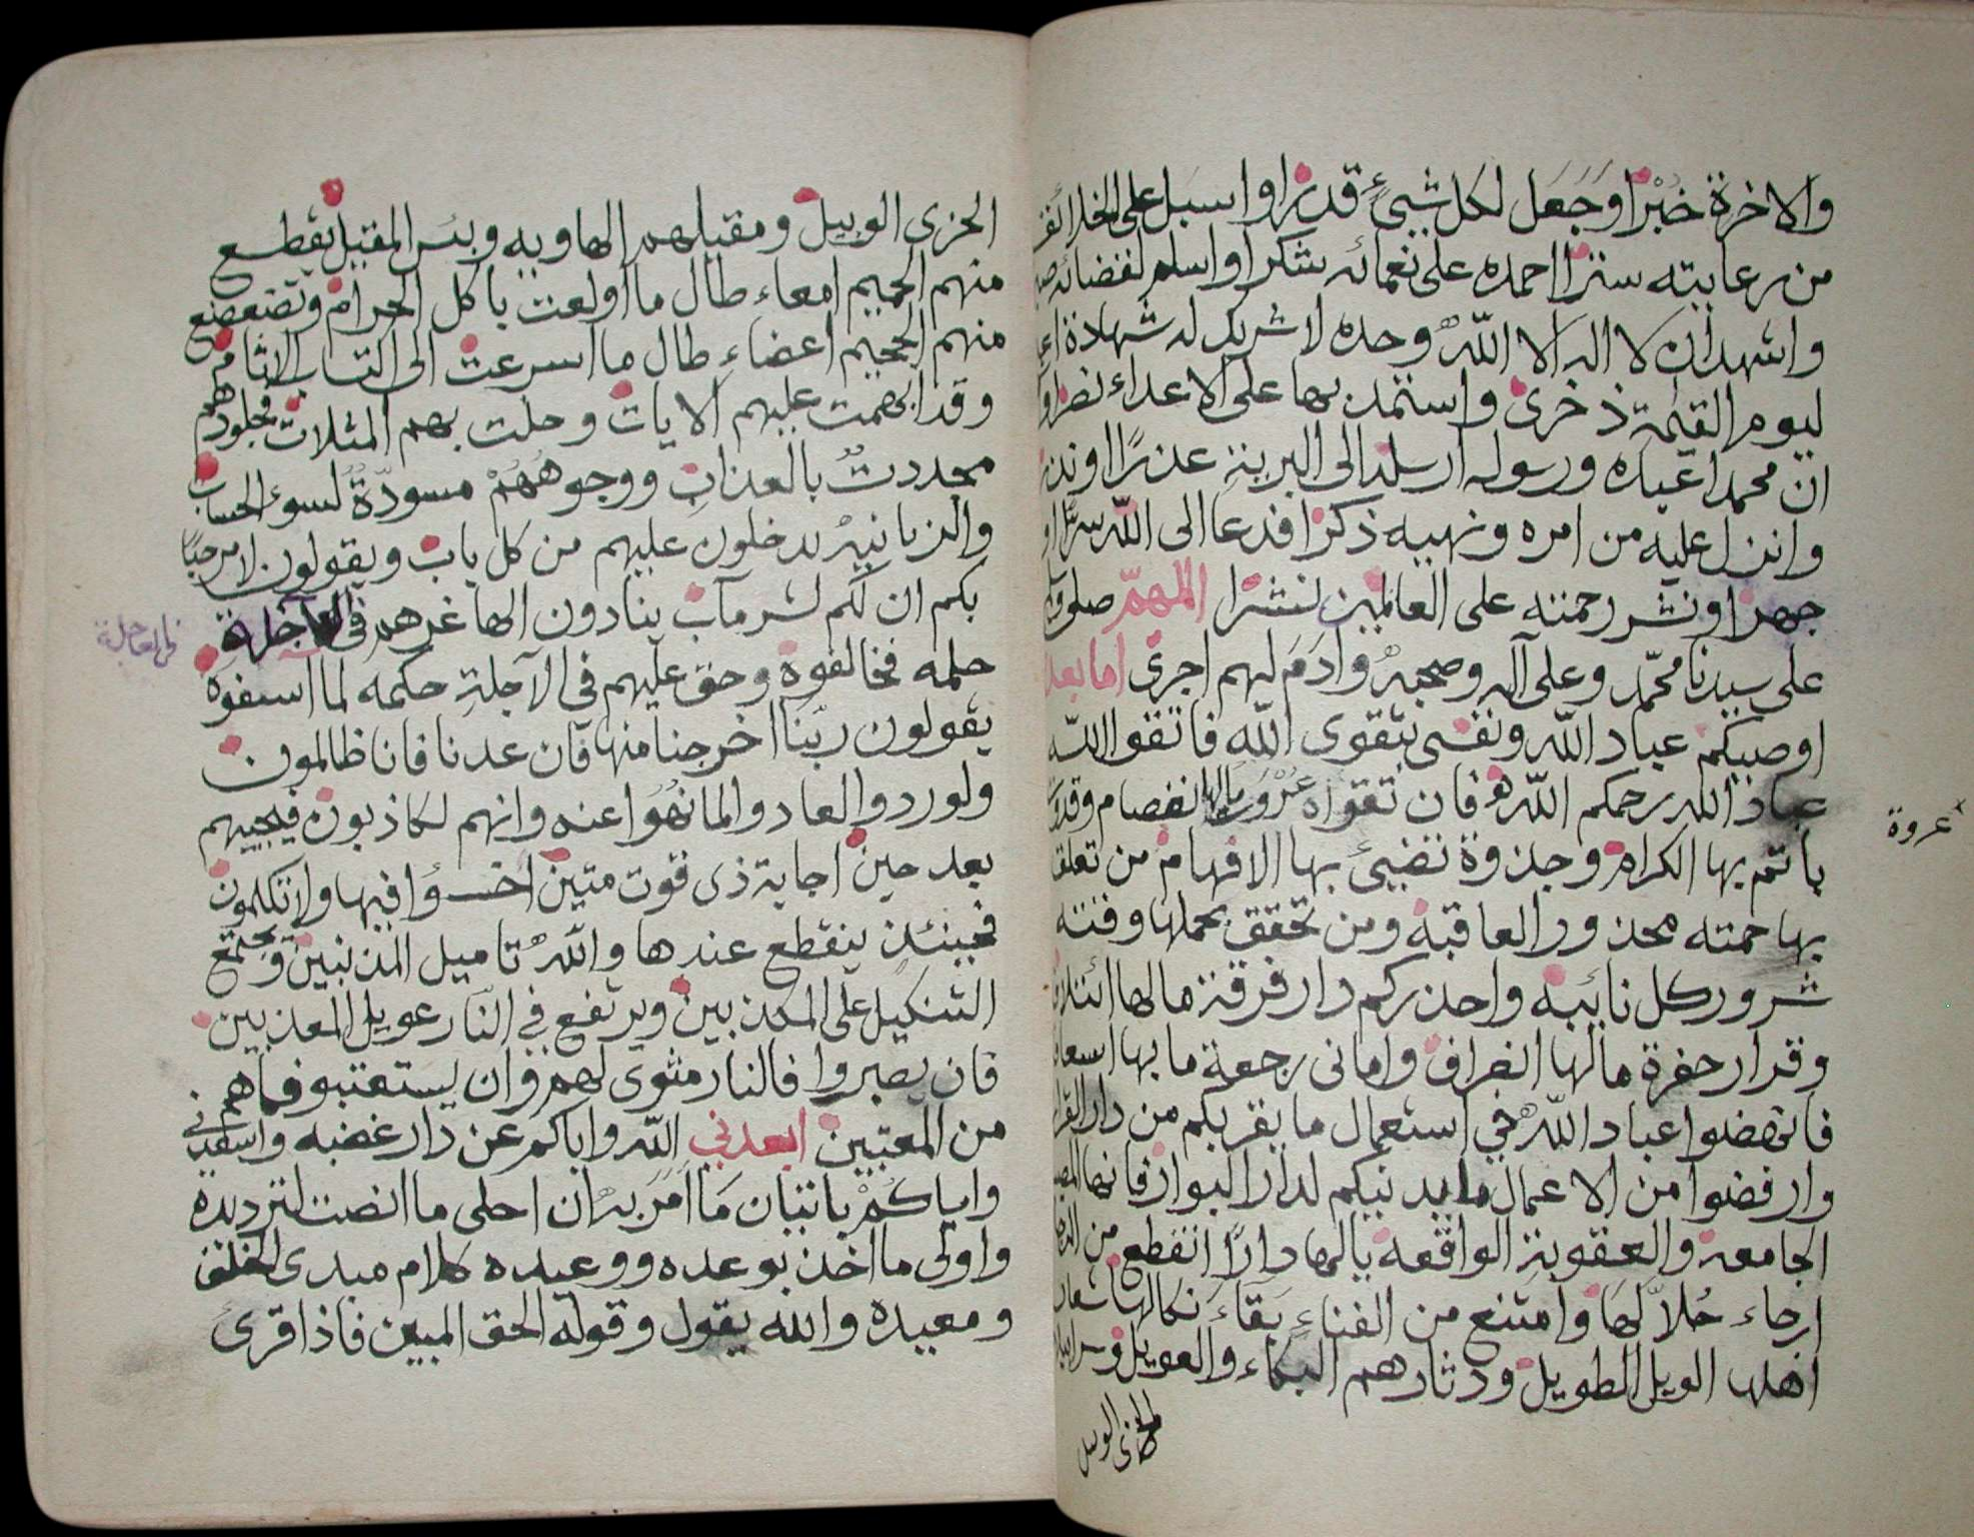 والاخرة خُبْرًا وَجَعَل لكل شيئٍ قدرًا واسبل على الخلائق
من رعايته سترًا احمده على نعمائه شكرًا واسلم لقضائه
واشهد ان لا اله الا اللّٰه وحده لا شريك له شهادة
ليوم القيٰمة ذخرى واستمد بها على الاعداء نصرًا و
ان محمدا عبده ورسوله ارسله الى البرية عذرًا او نذرا
وانزل عليه من امره ونهيه ذكرًا فدعا الى اللّه سرًّا و
جهرا ونشر رحمته على العالمين نشرًا اللهمّ صل وسلم
على سيدنا محمّد وعلى آله وصحبه وادم لهم اجرى اما بعد
اوصيكم عباد اللّه ونفسى بتقوى اللّه فاتقوا اللّه
عباد اللّه رحمكم اللّه فان تقواه عروة مالها انفصام
ياتم بها الكرام وجذوة تضيئ بها الافهام من تعلق
بها حمته محذور العاقبة ومن تحقق بحملها وقته
شرور كل نائبة واحذركم دار فرقة مالها ائتلاف
وقرار حفرة مالها انفراق وامانى رجعة ما بها اسعاف
فانهضوا عباد اللّه في استعمال ما يقربكم من دار القرار
وارفضوا من الاعمال ما يدنيكم لدار البوار فانها
الجامعة والعقوبة الواقعة يالها دارًا انقطع من
ارجاء حُلّالها وامتنع من الفناءِ بَقاءَ نكالها شعار
اهلها الويل الطويل ودثارهم البكاء والعويل
الوبيل
عروة
الخزى الوبيل ومقيلهم الهاويه وبئس المقيل يقطع
منهم الحميم امعاء طال ما اولعت باكل الحرام وتضعضع
منهم الجحيم اعضاءِ طال ما اسرعت الى اكتساب الاثام
وقد ابهمت عليهم الايات وحلت بهم المثلات فجلودهم
مجددتٌ بالعذاب ووجوههُمْ مسودّةٌ لسوء الحساب
والزبانيه يدخلون عليهم من كل باب ويقولون لا مرحبًا
بكم ان لكم لشر مآب ينادون الها غرهم فى العاجلة
فى العاجلة
حلمه فخالفوه وحق عليهم فى الآجلةِ حكمه لما اسفوه
يقولون ربَّنا اخرجنا منها فان عدنا فانا ظالمون
ولو ردوا لعادوا لما نُهُوا عنه وانهم لكاذبون فيجيبهم
بعد حين اجابة ذى قوت متين اخسؤا فيها ولا تكلمون
فحينئذ ينقطع عندها واللّه تاميل المذنبين ويجتمع
التنكيل على المكذبين ويرتفع في النّار عويل المعذبين
فان يصبروا فالنار مثوى لهم وان يستعتبو فماهم
من المعتبين ابعدني اللّه واياكم عن دار غضبه واسعدنى
واياكُمْ باتيان مَا امَرَ به ان احلى ما انصت لترديده
واولى ما اخذ بوعده ووعيده كلام مبدى الخلق
ومعيده والله يقول وقوله الحق المبين فاذا قرئ